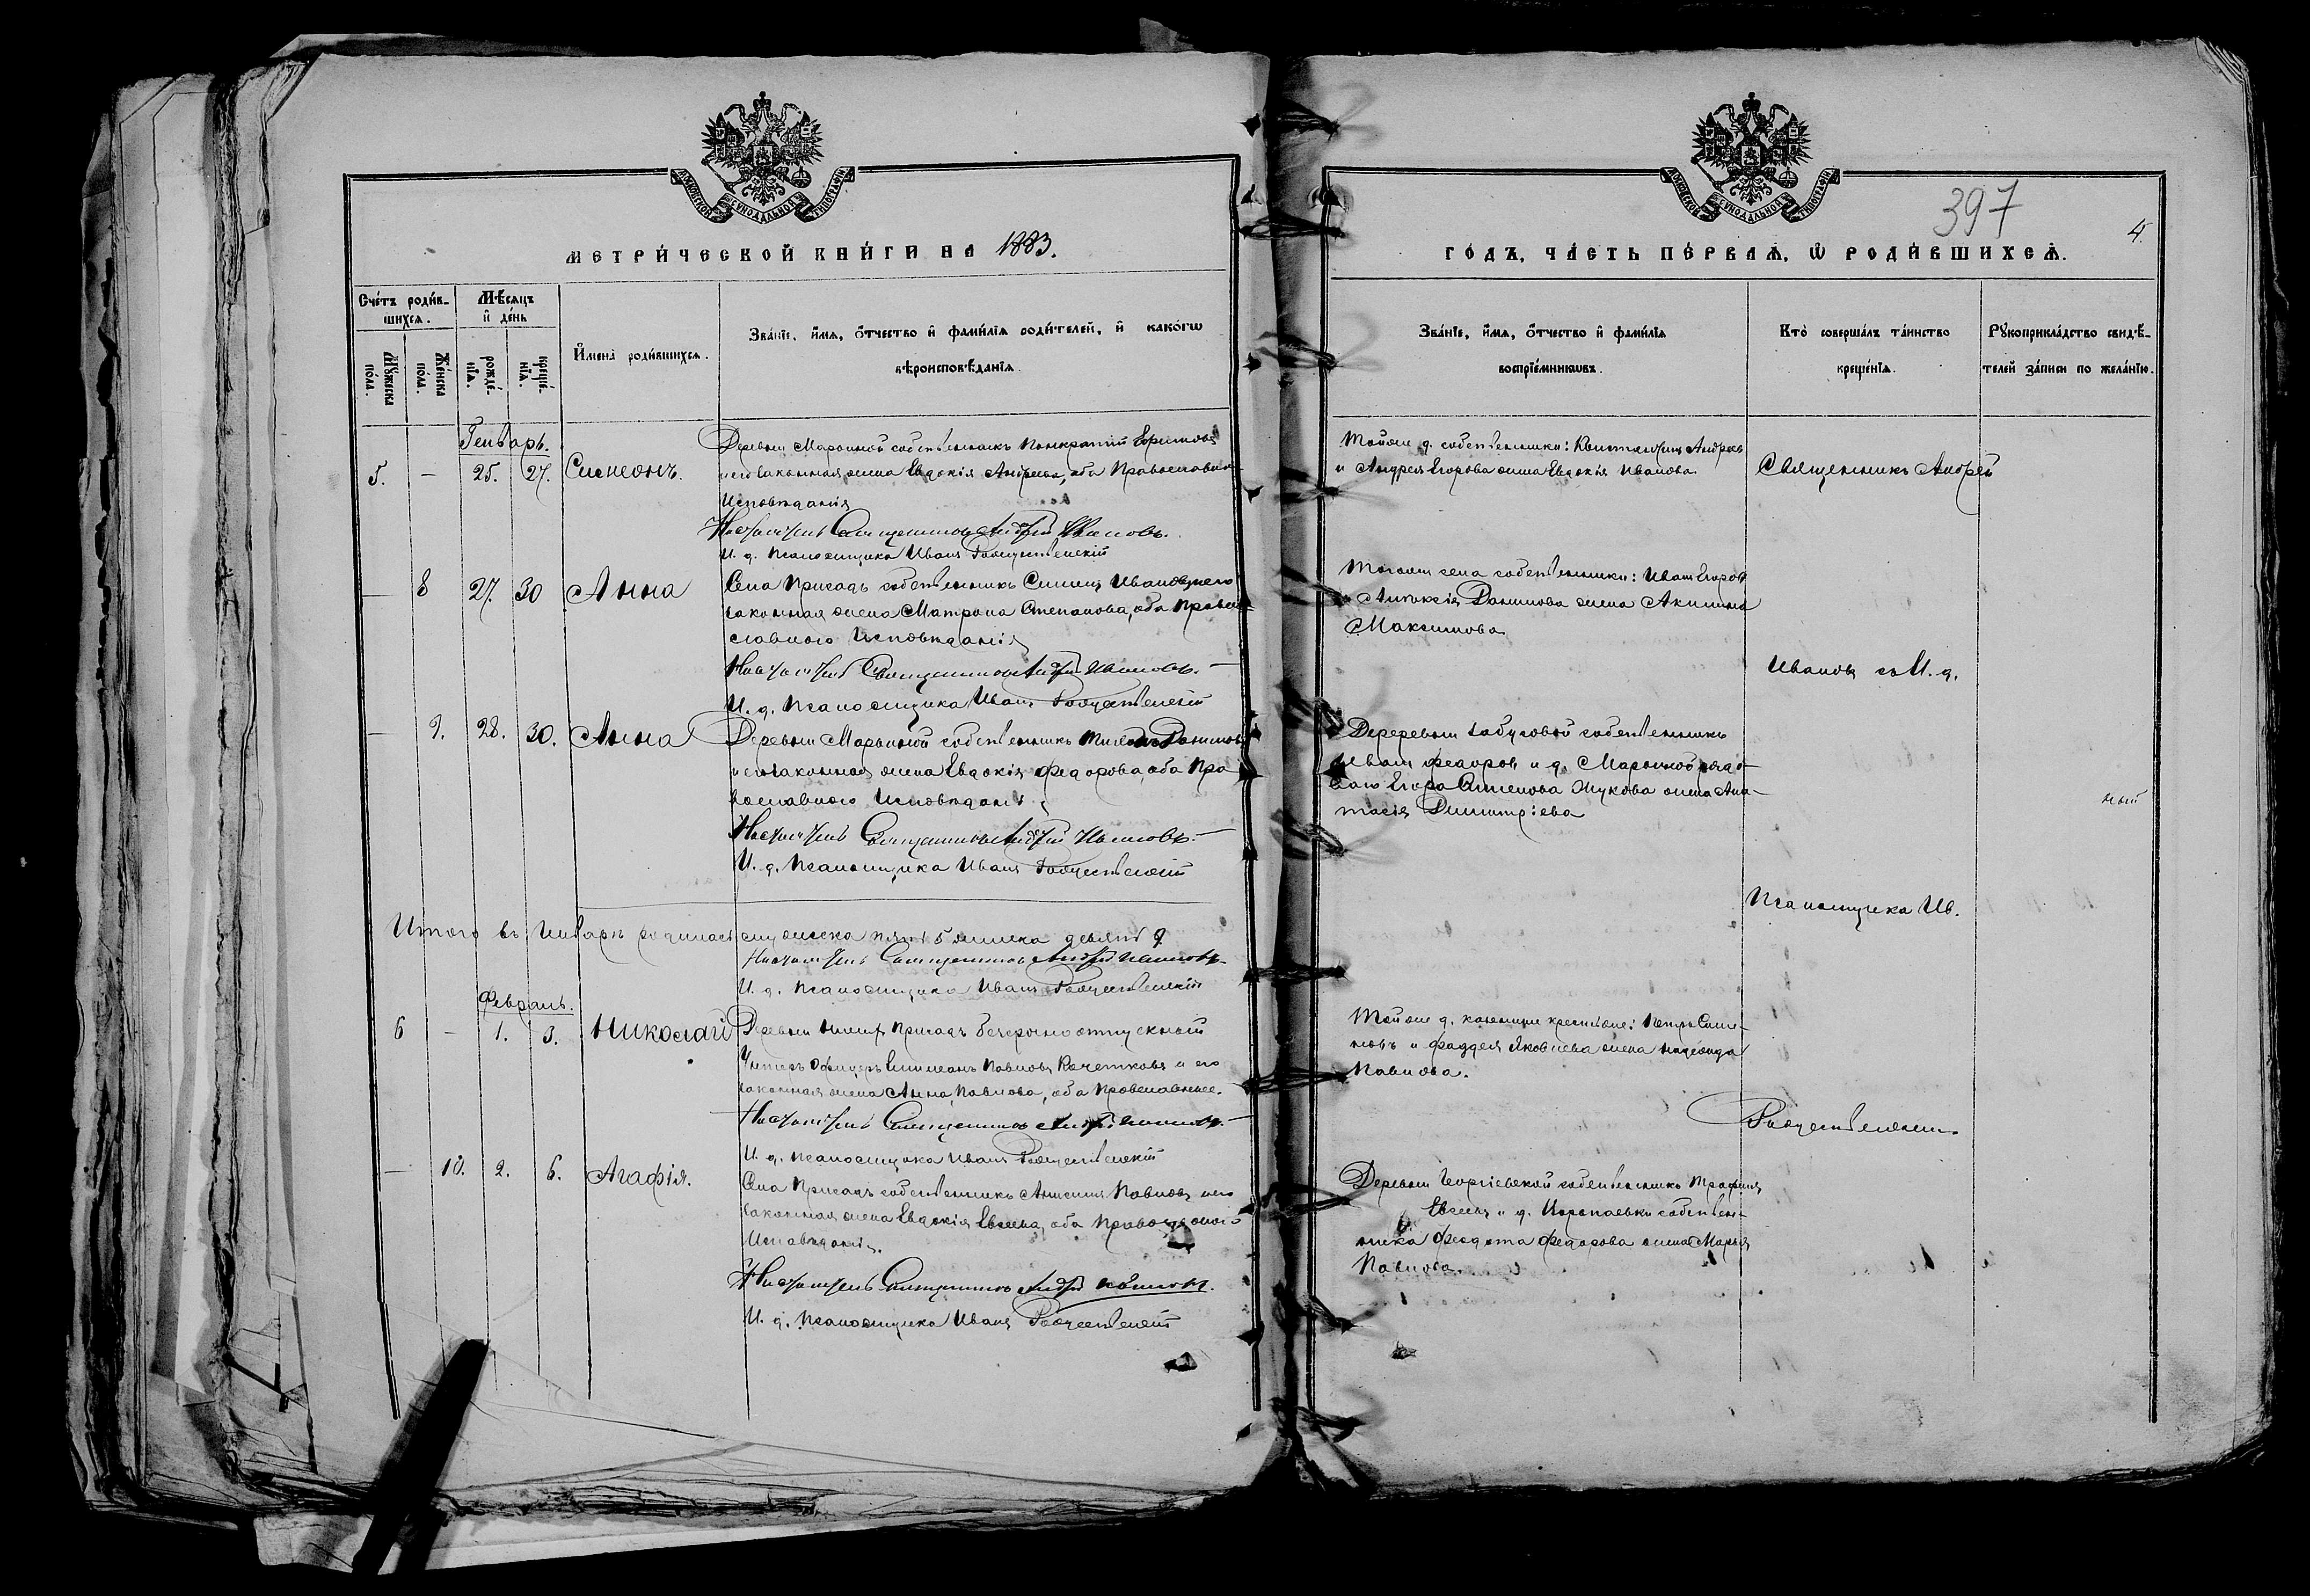 МОСКОВСКОЙ СѴНОДАЛЬНОЙ ТИПОГРАФІИ
МЕТРИ́ЧЕСКОЙ КНИ́ГИ НА 1883.
Сче́тъ роди́в-
шихся.
Мѣ́сяцъ
и҆ де́нь
Мꙋ́жеска
по́ла.
Же́нска
по́ла.
рожде́-
нїѧ.
креще́-
нїѧ.
И҆мена̀ роди́вшихсѧ.
Зва́нїе, и҆́мѧ, ѻ҆́тчество и҆ фами́лїѧ роди́телей, и҆ како́гѡ
вѣроисповѣ́данїѧ.
Генварь.
5. — 25. 27. Симеонъ.
Деревни Марьиной собственникъ Панкратій Ефимовъ
и его законная жена Евдокія Андреева, оба Православна-
Исповѣданія
Настоятель Священникъ Андрей Ивановъ.
И. д. Псаломщика Иванъ Рождественскій
— 8 27. 30 Анна
Села Присадъ собственникъ Симонъ Ивановъ и его
законная жена Матрона Степанова, оба Право-
славнаго Исповѣданія
Настоятель Священникъ Андрей Ивановъ.
И. д. Псаломщика Иванъ Рождественскій
— 9. 28. 30. Анна
Деревни Марьиной собственникъ Даниловъ
и его законная жена Евдокія Федорова, оба Пра-
вославнаго Исповѣданія
Настоятель Священникъ Андрей Ивановъ.
И. д. Псаломщика Иванъ Рождественскій
Итого въ Январѣ родилось мужеска пять 5 женска девять 9
Настоятель Священникъ Андрей Ивановъ.
И. д. Псаломщика Иванъ Рождественскій
Февраль.
6 — 1. 3. Николай
Деревни Присадъ безсрочноотпускный
Унтеръ Офицеръ Павловъ Кочетковъ и его
законная жена Анна Павлова, оба Православные.
Настоятель Священникъ Андрей Ивановъ.
И. д. Псаломщика Иванъ Рождественскій
— 10. 2. 6. Агафія.
Села Присадъ собственникъ Анисимъ Павловъ и его
законная жена Евдокія Евсеева, оба Православнаго
Исповѣданія.
Настоятель Священникъ Андрей Ивановъ.
И. д. Псаломщика Иванъ Рождественскій
МОСКОВСКОЙ СѴНОДАЛЬНОЙ ТИПОГРАФІИ
397
4.
ГО́ДЪ, ЧА́СТЬ ПЕ́РВАѦ, Ѡ҆ РОДИ́ВШИХСѦ.
Зва́нїе, и҆́мѧ, ѻ҆́тчество и҆ фами́лїѧ
воспрїе́мникѡвъ.
Кто̀ соверша́лъ та́инство
креще́нїѧ.
Рꙋкоприкла́дство свидѣ́-
телей за́писи по жела́нїю.
Той же д. собственники: Константинъ Андреевъ
и Андрея Егорова жена Евдокія Иванова.
Священникъ Андрей
Того же села собственники: Иванъ Егоровъ
и Алексія Данилова жена Акилина
Максимова
Ивановъ съ И. д.
Дереревни собственникъ
Иванъ Федоровъ и д. Марьиной
Егора Жукова жена Ана-
тасія Димитріева
Псаломщика Ив.
Той же д. казенные крестьяне: Петръ Симе-
новъ и Фаддея Яковлева жена Надежда
Павлова.
Рождественскимъ
Деревни Георгіевской собственникъ Трофимъ
Евсеевъ и д. собствен-
ника Федота Федорова жена Марья
Павлова.